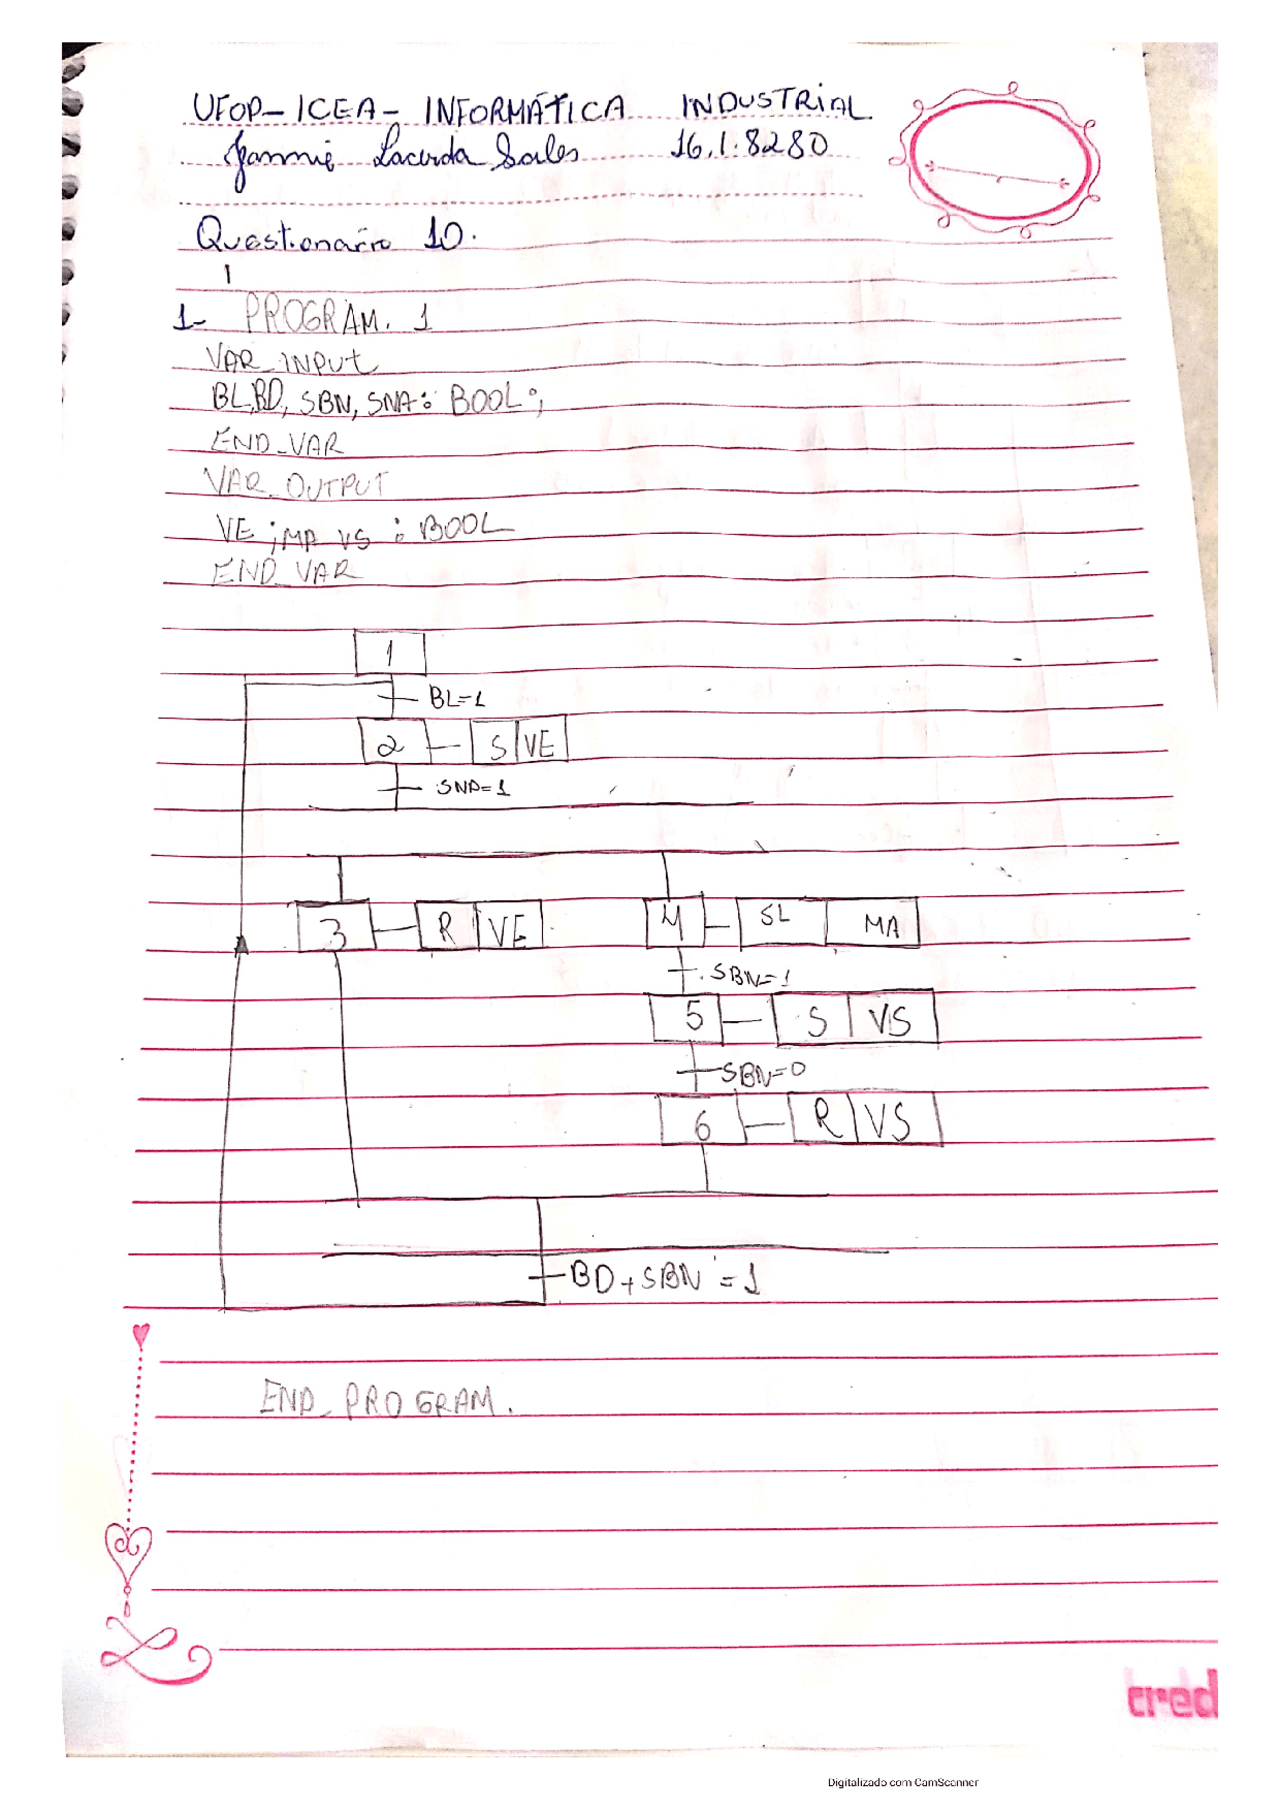 UFOP-ICEA- INFORMÁTICA INDUSTRIAL
Jammie Lacerda Sales 16.1.8280
Questionário 10.
1
1- PROGRAM. 1
VAR_INPUt
BL,BD, SBN, SNA: BOOL;
END_VAR
VAR_OUTPUT
VE ;MA VS : BOOL
END_VAR
1
BL=1
2 S VE
SNA=1
3 R VE 4 SL MA
SBN=1
5 S VS
SBN=0
6 R VS
BD+SBN'=1
END_PROGRAM.
cred
Digitalizado com CamScanner